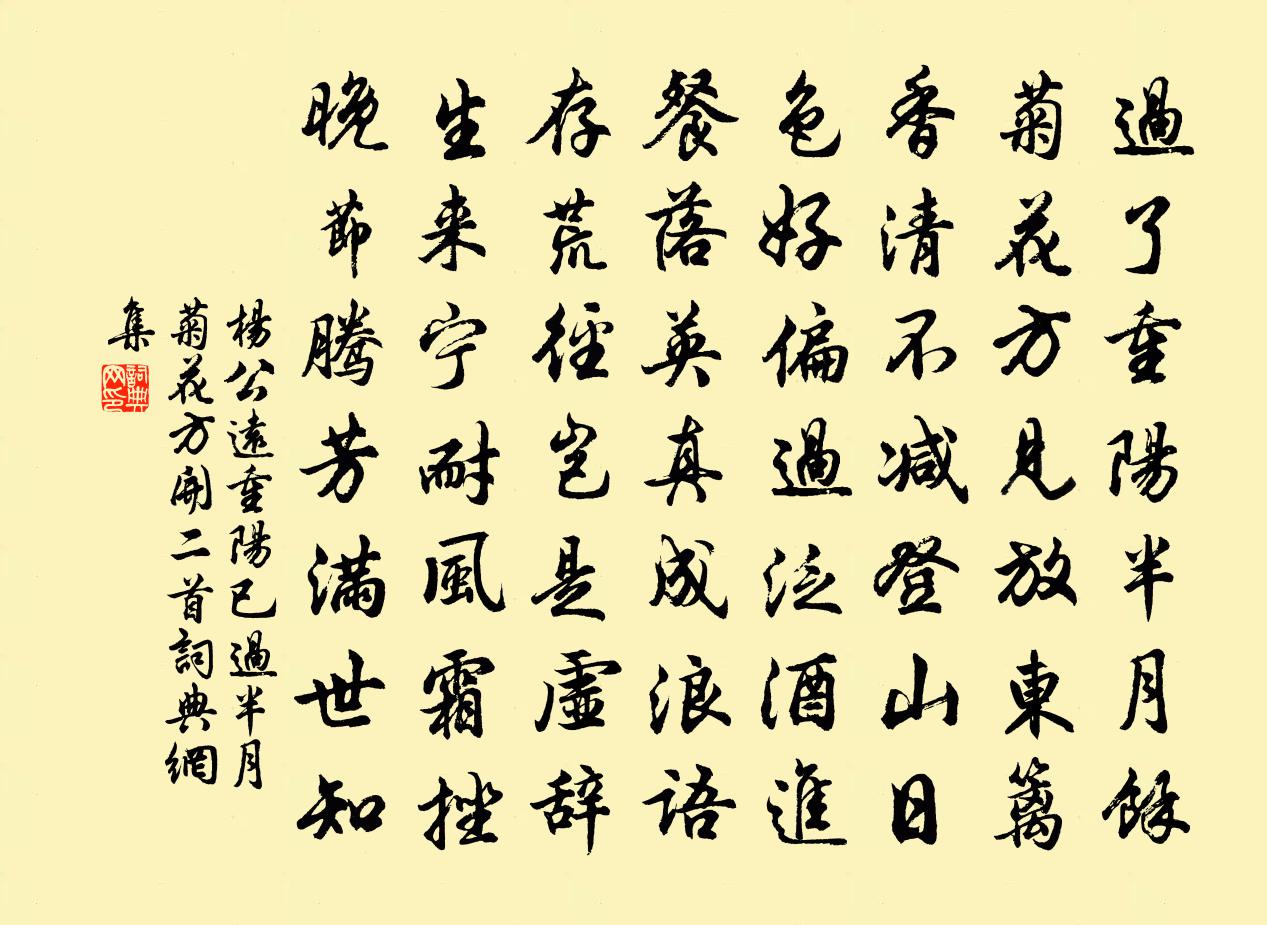 過了重陽半月餘
菊花方見放東籬
香清不减登山日
色好偏過泛酒進
餐落英真成浪語
存荒徑豈是虛辞
生来宁耐風霜挫
晚節騰芳满世知
楊公遠重陽已過半月
菊花方開二首詞典網
集
詞典网印